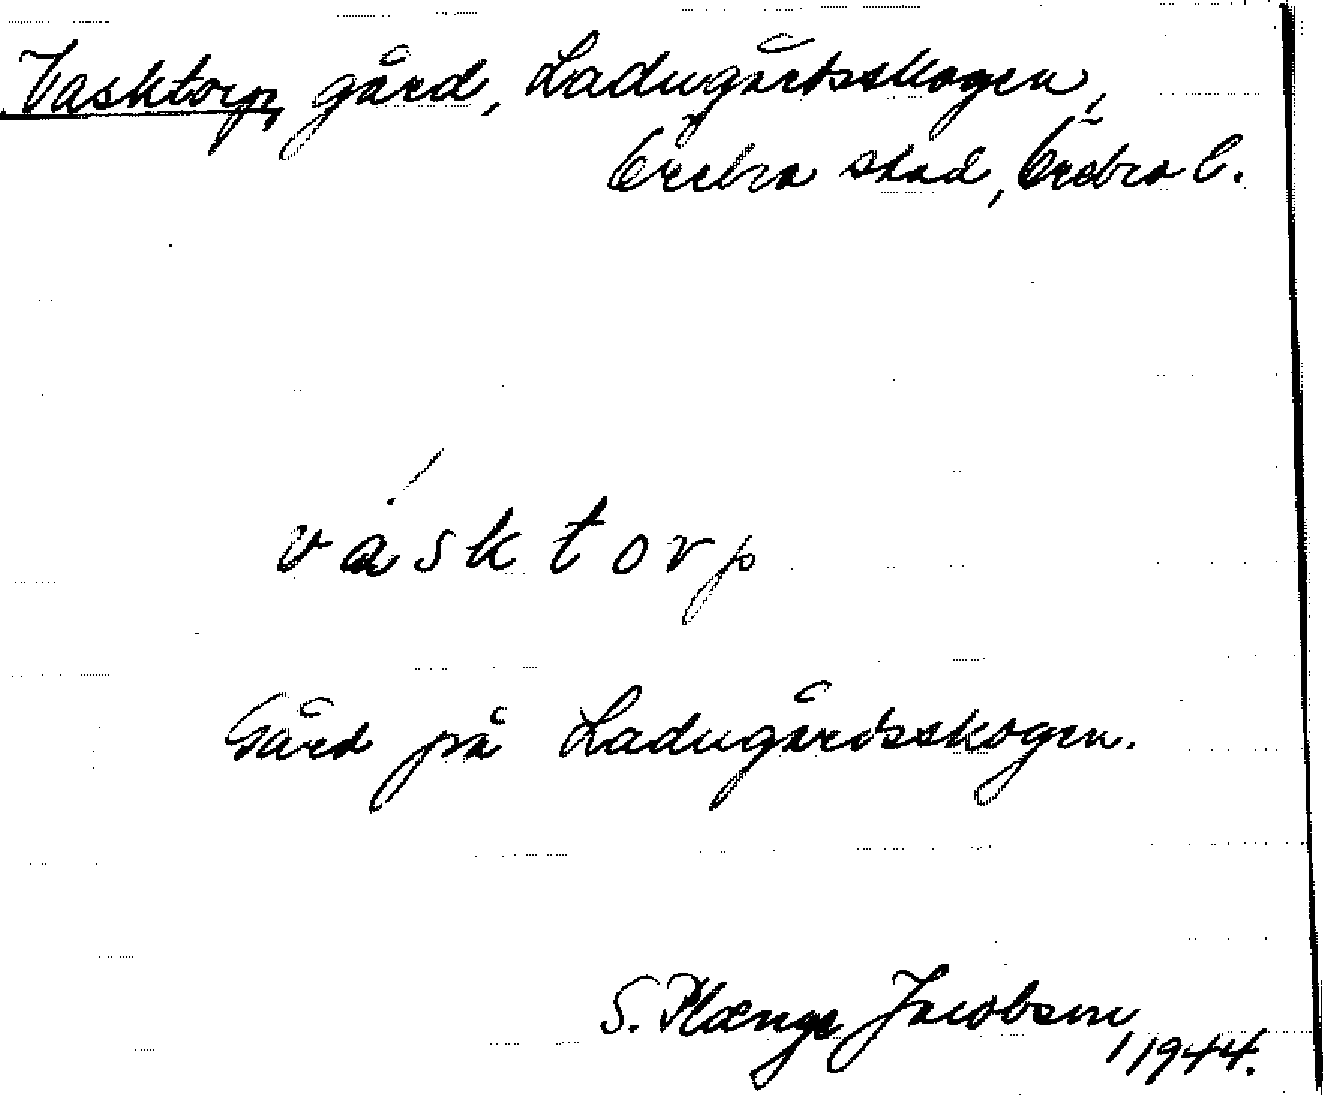 Vasktorp, gård, Ladugårdsskogen,
Örebro stad, Örebro l.
vásktorp
Gård på Ladugårdsskogen.
S. Plænge Jacobson, 1944.